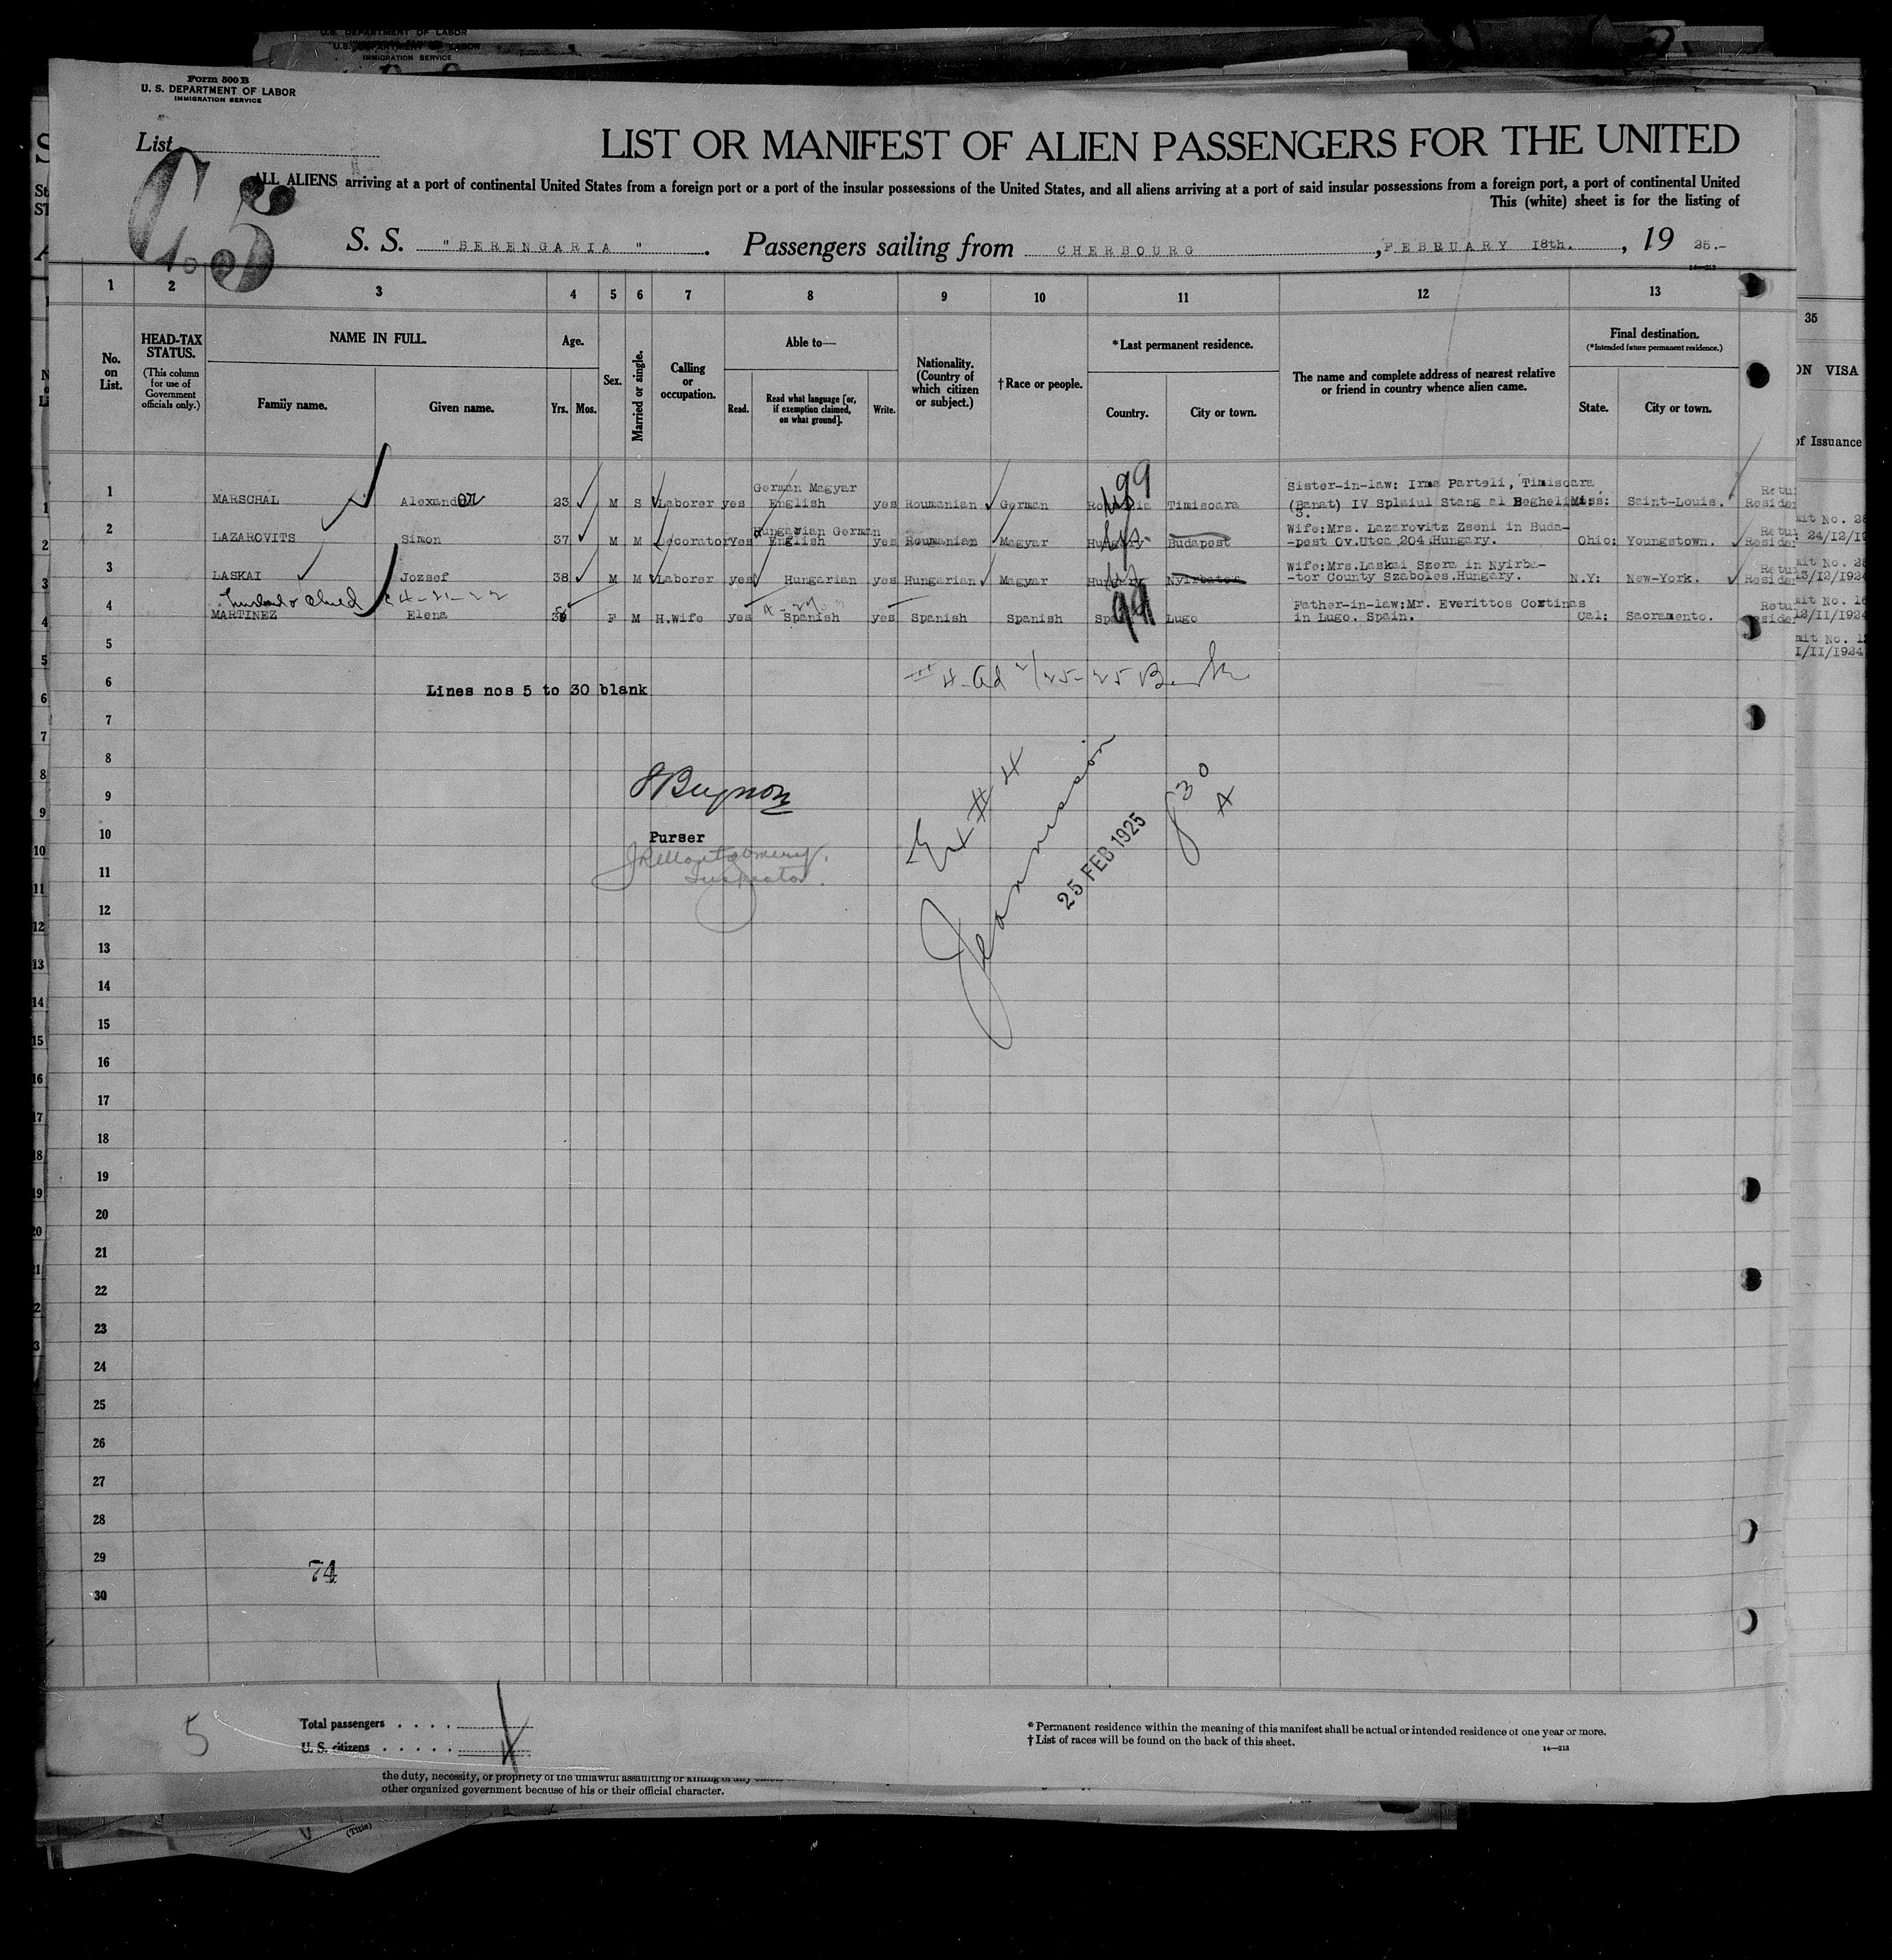 U. S. DEPARTMENT OF LABOR
IMMIGRATION SERVICE
Form 500 B
U. S. DEPARTMENT OF LABOR
IMMIGRATION SERVICE
List
LIST OR MANIFEST OF ALIEN PASSENGERS FOR THE UNITED
ALL ALIENS arriving at a port of continental United States from a foreign port or a port of the insular possessions of the United States, and all aliens arriving at a port of said insular possessions from a foreign port, a port of continental United
This (white) sheet is for the listing of
S. S. " BERENGARIA ". Passengers sailing from CHERBOURG , FEBRUARY 18th. , 19 25.-
14—213
1 2 3 4 5 6 7 8 9 10 11 12 13 35
No. on List.
HEAD-TAX STATUS.
(This column for use of Government officials only.)
NAME IN FULL.
Family name. Given name.
Age.
Yrs. Mos.
Sex.
Married or single.
Calling or occupation.
Able to—
Read. Read what language [or, if exemption claimed, on what ground]. Write.
Nationality. (Country of which citizen or subject.)
† Race or people.
*Last permanent residence.
Country. City or town.
The name and complete address of nearest relative or friend in country whence alien came.
Final destination.
(*Intended future permanent residence.)
State. City or town.
ON VISA
of Issuance
1 MARSCHAL Alexander 23 M S Laborer yes German Magyar English yes Roumanian German Timisoara Sister-in-law: Irma Parteli, Timisoara (Banat) IV Splaiul Stang al Beghelim 3. Miss: Saint-Louis.
2 LAZAROVITS Simon 37 M M Decorator Yes Hungarian German English yes Roumanian Magyar Hungary Budapest Wife:Mrs. Lazarovitz Zseni in Buda-
-pest Ov.Utca 204 Hungary. Ohio: Youngstown.
3 LASKAI Jozsef 38 M M Laborer yes Hungarian yes Hungarian Magyar Hungary Nyirbator Wife:Mrs.Laskai Szera in Nyirba-
-tor County Szaboles.Hungary. N.Y: New-York.
husband & child 4-21-22
4 MARTINEZ Elena F M H.Wife yes Spanish yes Spanish Spanish Lugo Father-in-law:Mr. Everittos Cortinas
in Lugo. Spain. Cal: Sacramento.
24/12/19
13/12/1924
12/11/1924
1/11/1924
5
6
Lines nos 5 to 30 blank
7
8
9
Purser
10
J R Montgomery.
Inspector.
11
25 FEB 1925
830 A
12
13
14
15
16
17
18
19
20
21
22
23
24
25
26
27
28
29
74
30
5
Total passengers . . . .
U. S. citizens . . . . .
4
* Permanent residence within the meaning of this manifest shall be actual or intended residence of one year or more.
† List of races will be found on the back of this sheet.
14—213
the duty, necessity, or propriety of the unlawful assaulting or killing of any
other organized government because of his or their official character.
(Title)